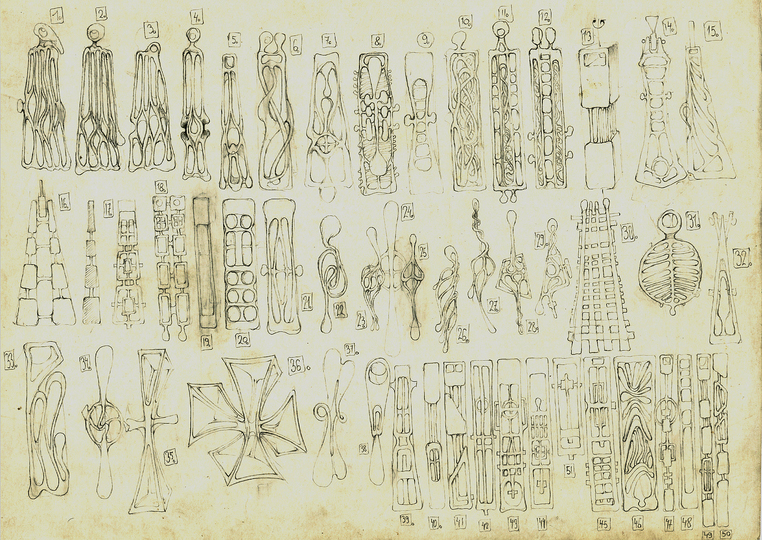 1. 2. 3. 4. 5. 6. 7. 8 9. 10. 11. 12. 13 14. 15.
16. 17. 18. 19 20 21 22 23 24 25 26. 27. 28 29. 30. 31. 32.
33. 34. 35 36. 37. 38
39. 40. 41 42 43 44 51 45 46 47 48 49 50